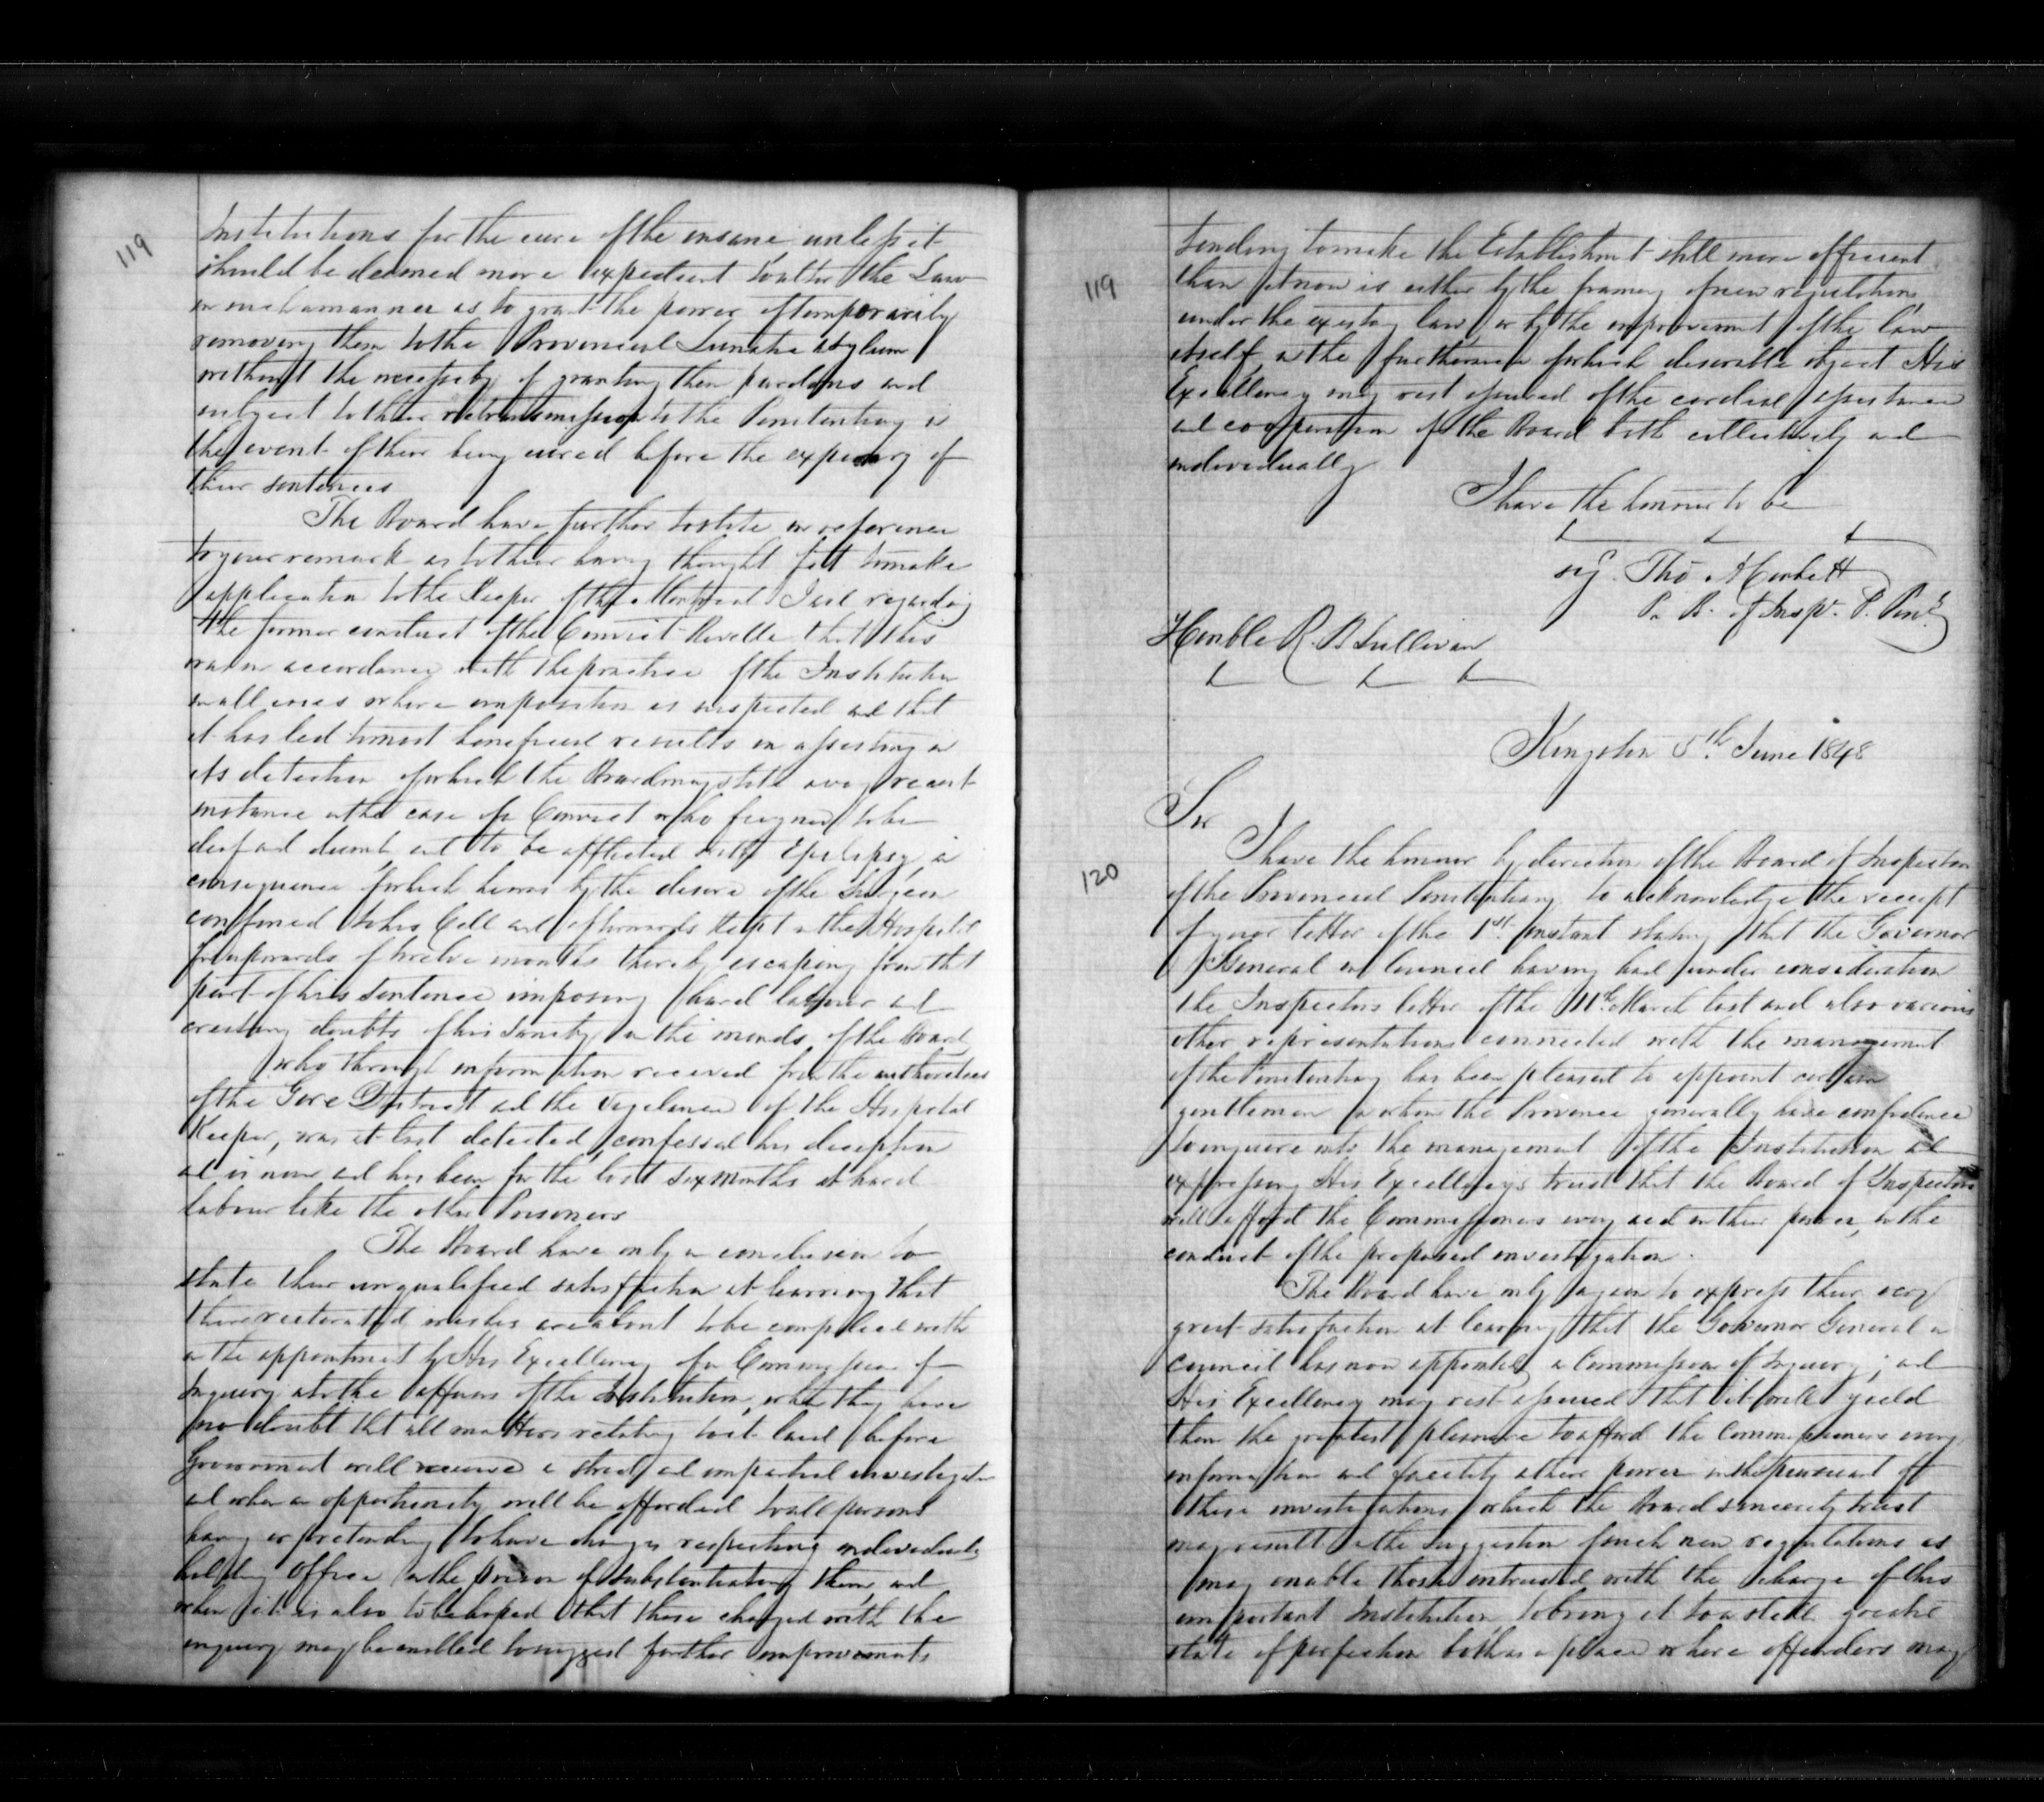 119
Institutions for the cure of the insane unless it
should be deemed more expedient to alter the Law
in such a manner as to grant the power of temporarily
removing them to the Provincial Lunatic Asylum
without the necessity of granting them pardons and
subject to their retransmission to the Penitentiary in
the event of their being cured before the expiry of
their sentences
The Board have further to state in reference
to your remark as to their having thought fit to make
application to the Keeper of the Montreal Jail regarding
the former conduct of the Convict Reveille that this
was in accordance with the practice of the Institution
in all cases where imposition is suspected and that
it has led to most beneficial results in assisting in
its detection of which the Board may state a very recent
instance in the case of a Convict who feigned to be
deaf and dumb, and to be afflicted with Epilepsy, in
consequence of which he was by the desire of the Surgeon
confined to his Cell and afterwards kept in the Hospital
for upwards of twelve months thereby escaping from that
part of his sentence imposing hard labour and
creating doubts of his sanity in the minds of the Board
who through information received from the authorities
of the Gore District and the vigilance of the Hospital
Keeper, was at last detected, confessed his deception
and is now and has been for the last six months at hard
labour like the other Prisoners
The Board have only in conclusion to
state their unqualified satisfaction at learning that
their reiterated wishes are about to be complied with
in the appointment by His Excellency of a Commission of
Inquiry into the affairs of the Institution, when they have
no doubt that all matters relating to it laid before
Government will receive a strict and impartial investigation
and when an opportunity will be afforded to all persons
having or pretending to have charges respecting individuals
holding office in the prison of substantiating them, and
when it is also to be hoped that those charged with the
inquiry may be enabled to suggest further improvements
119
tending to make the Establishment still more efficient
than it now is either by the framing of new regulations
under the existing law, or by the improvement of the law
itself, in the furtherance of which desirable object His
Excellency may rest assured of the cordial assistance
and cooperation of the Board both collectively and
individually
I have the honour to be
sig. Tho. A Corbett
P. B. of Insp. P. Peny
Honble R. B Sullivan
Kingston 5th June 1848
Sir
120
I have the honour by direction of the Board of Inspectors
of the Provincial Penitentiary to acknowledge the receipt
of your letter of the 1st instant stating that the Governor
General in Council having had under consideration
the Inspectors letter of the 11th March last and also various
other representations connected with the management
of the Penitentiary has been pleased to appoint certain
gentlemen in whom the Province generally have confidence
to inquire into the management of the Institution and
expressing His Excellency's trust that the Board of Inspectors
will afford the Commissioners every aid in their power, in the
conduct of the proposed investigation.
The Board have only again to express their very
great satisfaction at learning that the Governor General in
Council has now appointed a Commission of Inquiry; and
His Excellency may rest assured that it will yield
them the greatest pleasure to afford the Commissioners every
information and facility in their power in the pursuant of
these investigations which the Board sincerely trust
may result in the suggestion of such new regulations as
may enable those entrusted with the charge of this
important Institution to bring it to a still greater
state of perfection both as a place where offenders may